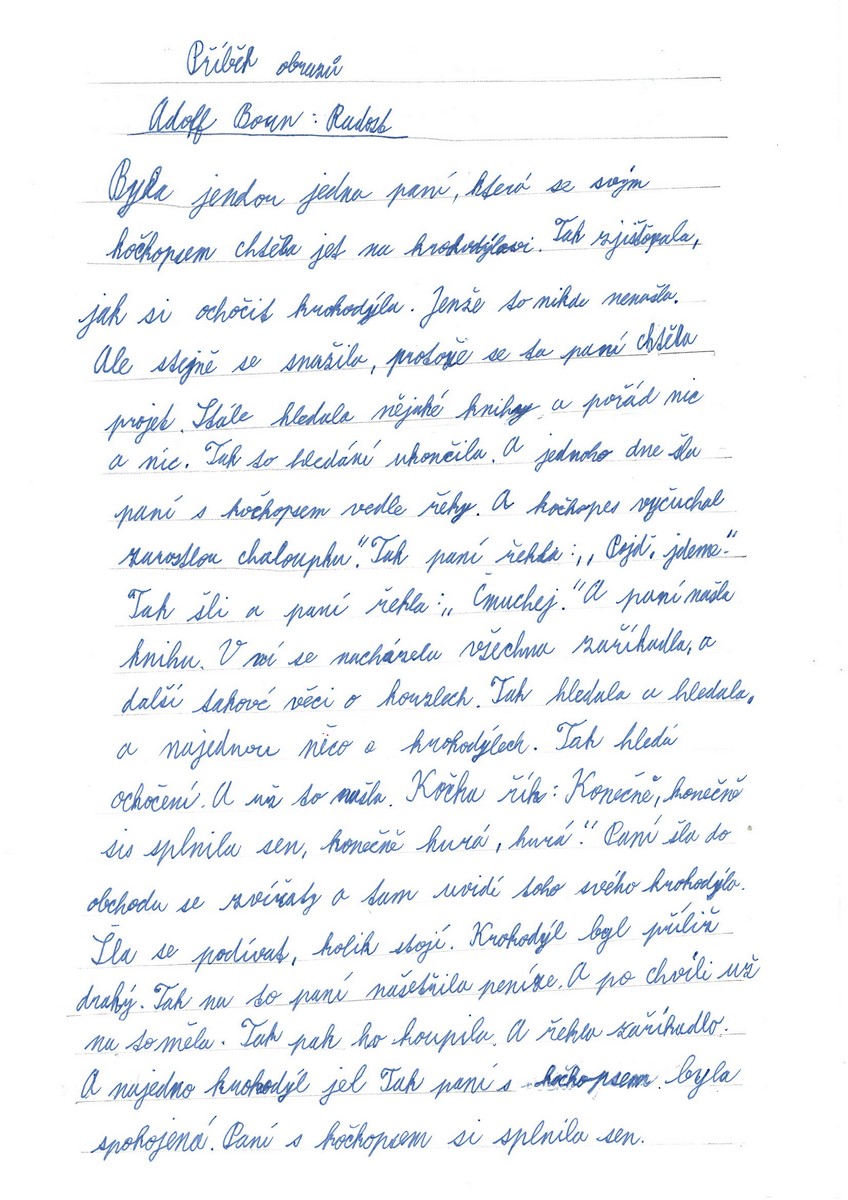 Příběh obrazů
Adolf Born: Radost
Byla jendou jedna paní, která se svým
kočkopsem chtěla jet na krokodýlovi. Tak zjišťovala,
jak si ochočit krokodýla. Jenže to nikde nenašla.
Ale stejně se snažila, protože se ta paní chtěla
projet. Stále hledala nějaké knihy a pořád nic
a nic. Tak to hledání ukončila. A jednoho dne šla
paní s kočkopsem vedle řeky. A kočkopes vyčuchal
zarostlou chaloupku". Tak paní řekla:„ Pojď, jdeme."
Tak šli a paní řekla:„ Čmuchej." A paní našla
knihu. V ní se nacházela všechna zaříkadla, a
další takové věci o kouzlech. Tak hledala a hledala,
a najednou něco o krokodýlech. Tak hledá
ochočení. A už to našla. Kočka řík: Konečně, konečně
sis splnila sen, konečně hurá, hurá." Paní šla do
obchodu se zvířaty a tam uvidí toho svého krokodýla.
Šla se podívat, kolik stojí. Krokodýl byl příliž
drahý. Tak na to paní našetřila peníze. A po chvíli už
na to měla. Tak pak ho koupila. A řekla zaříkadlo.
A najedno krokodýl jel Tak paní s kočkopsem byla
spokojená. Paní s kočkopsem si splnila sen.